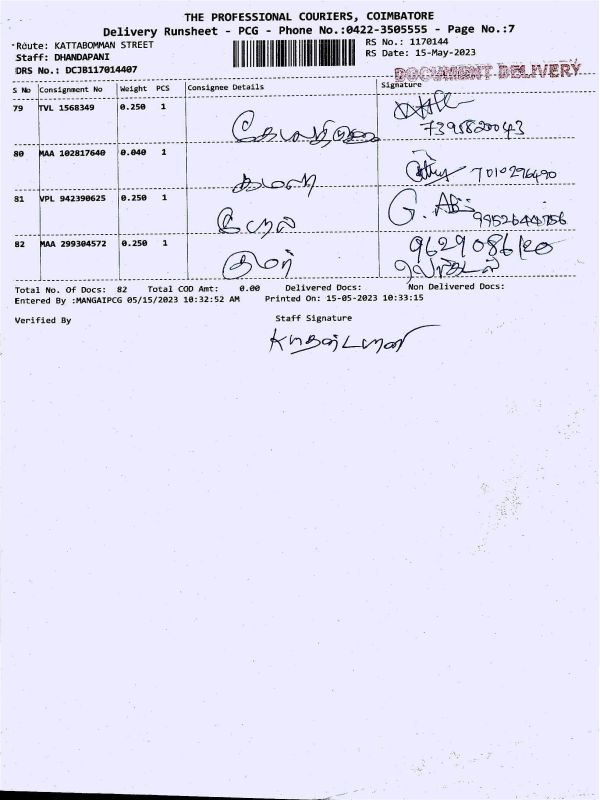 THE PROFESSIONAL COURIERS, COIMBATORE
Delivery Runsheet - PCG - Phone No.:0422-3505555 - Page No.:7
Route: KATTABOMMAN STREET RS No.: 1170144
Staff: DHANDAPANI RS Date: 15-May-2023
DRS No.: DCJB117014407
DOCUMENT DELIVERY
S No Consignment No Weight PCS Consignee Details Signature
79 TVL 1568349 0.250 1
7395820043
80 MAA 102817640 0.040 1
7010296490
81 VPL 942390625 0.250 1 G. Abi
9952644756
82 MAA 299304572 0.250 1 குமார்
Total No. Of Docs: 82 Total COD Amt: 0.00 Delivered Docs: Non Delivered Docs:
Entered By :MANGAIPCG 05/15/2023 10:32:52 AM Printed On: 15-05-2023 10:33:15
Verified By Staff Signature